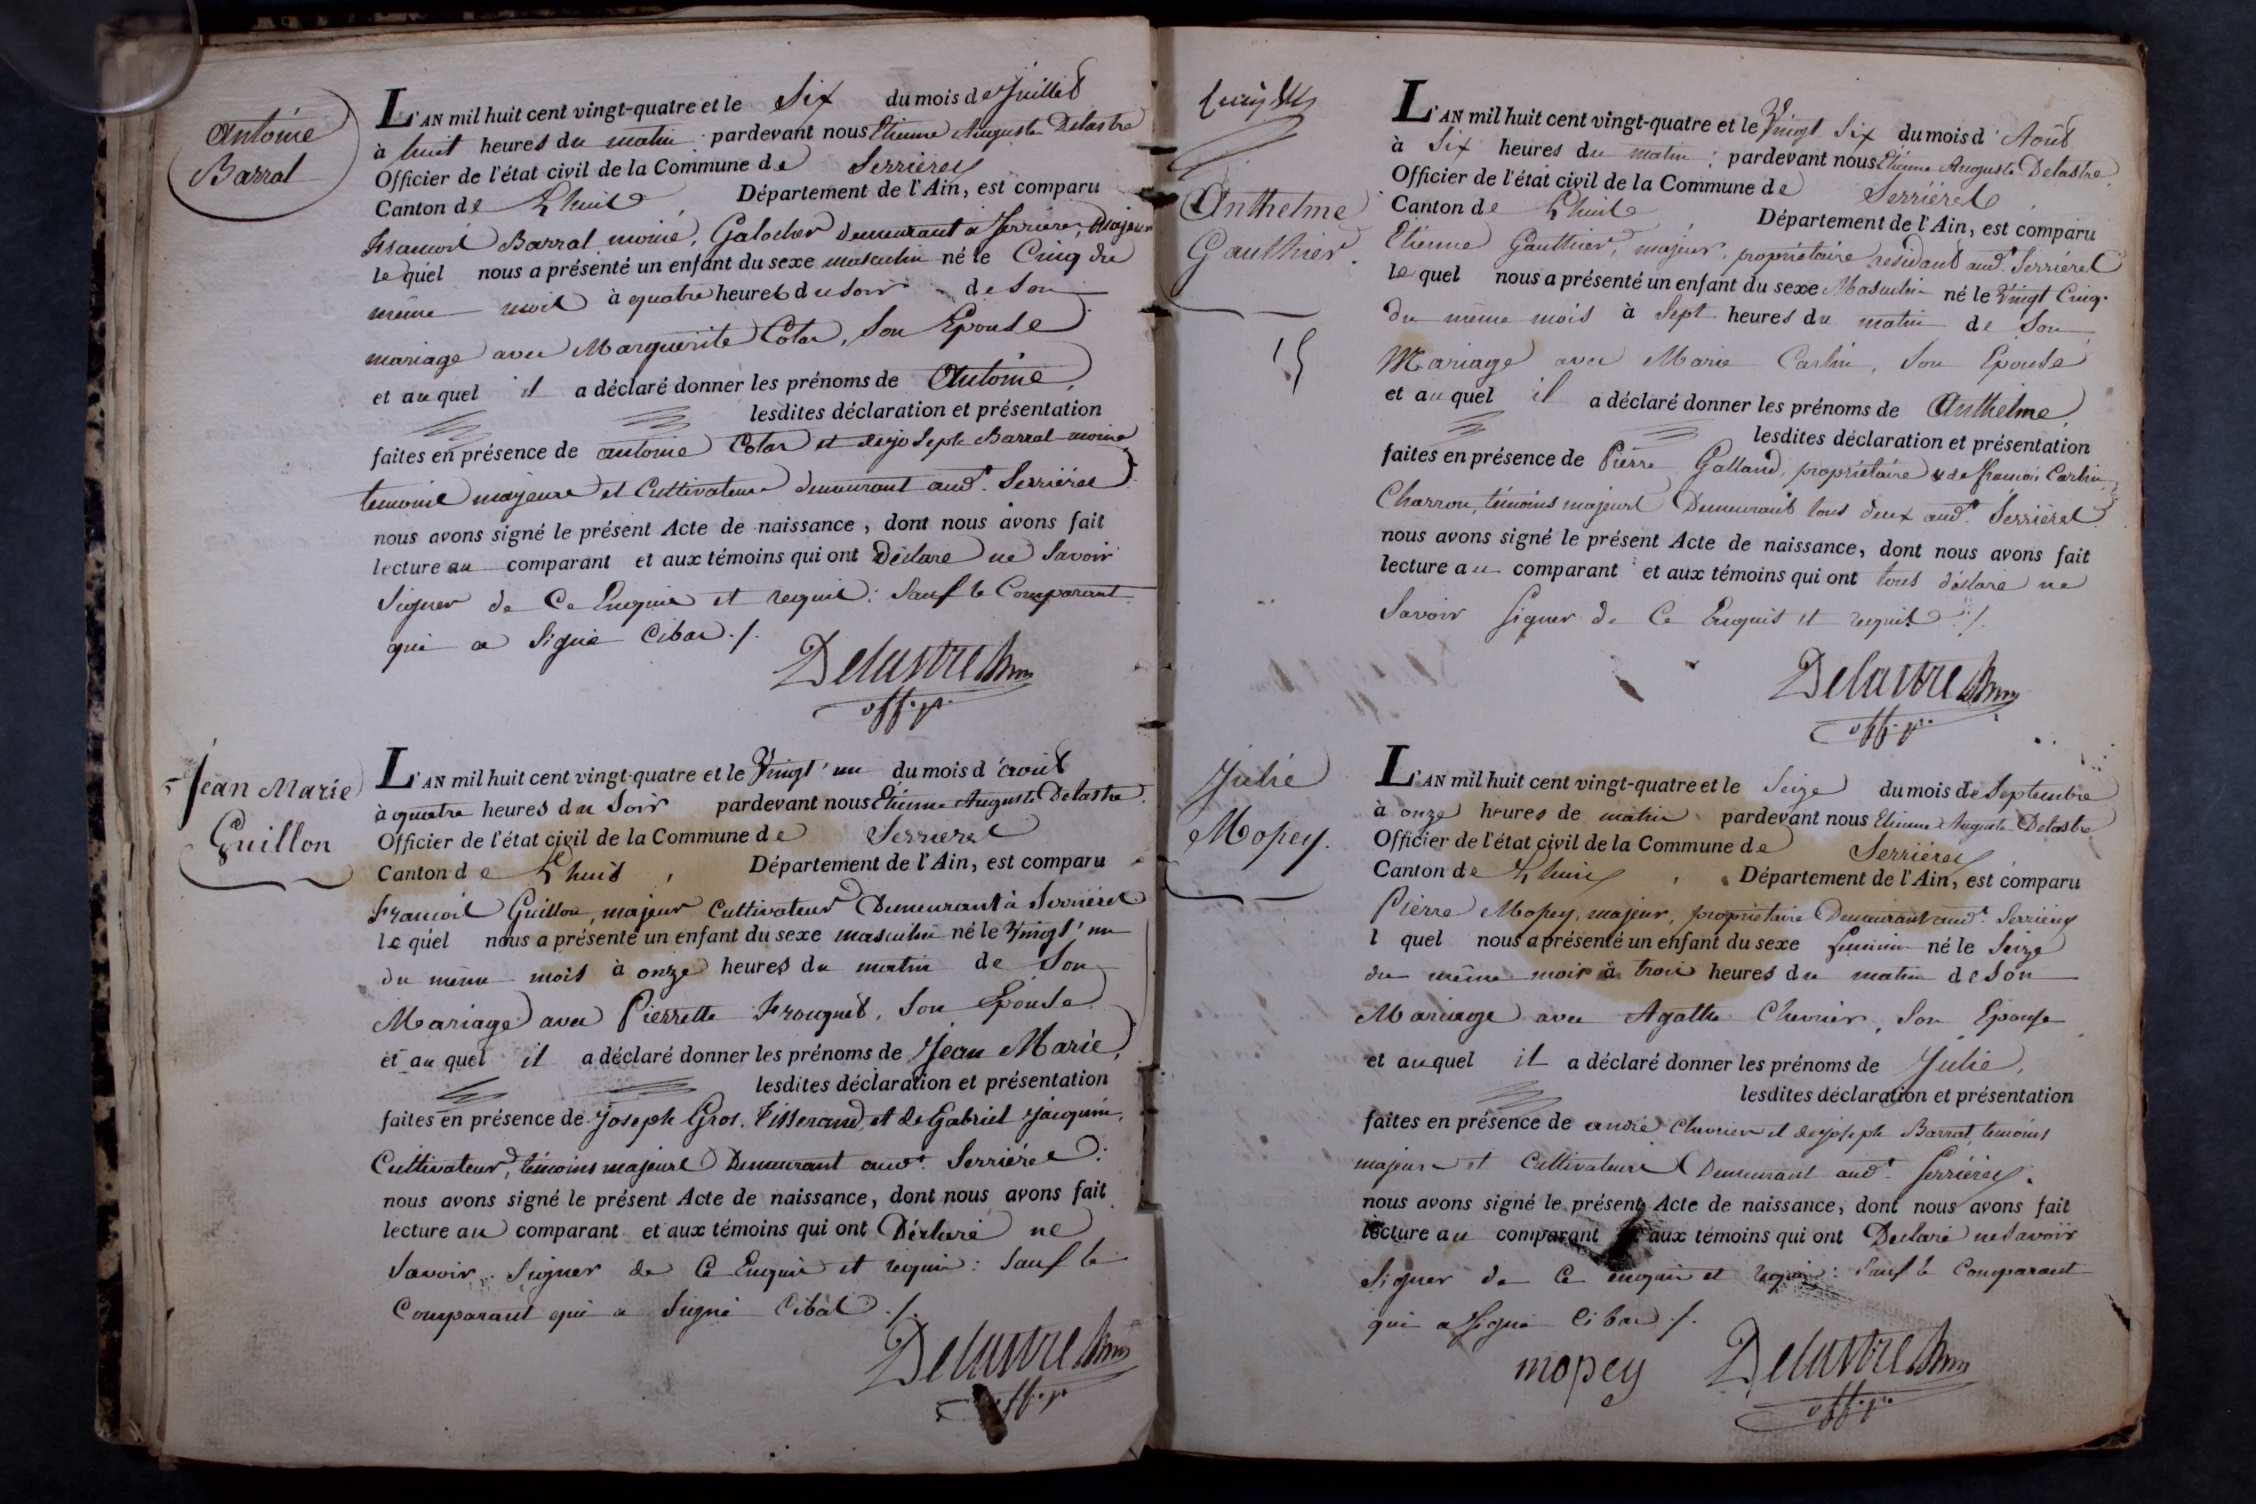 Antoine
Barral
L'AN mil huit cent vingt-quatre et le Six du mois de Juillet
à huit heures du matin pardevant nous Etienne Auguste Delastre
Officier de l'état civil de la Commune de Serrieres
Canton de Lhuis Département de l'Ain, est comparu
Francois Barral moine, Galocher demeurant a Serrieres, Majeur
le quel nous a présenté un enfant du sexe masculin né le Cinq du
même mois à quatre heures du soir de son
mariage avec Marguerite Cotar, Son Epouse
et au quel il a déclaré donner les prénoms de Antoine,
lesdites déclaration et présentation
faites en présence de antoine Cotar et de joseph Barral moine
temoins majeurs et Cultivateurs demeurant aud. Serrières
nous avons signé le présent Acte de naissance, dont nous avons fait
lecture au comparant et aux témoins qui ont Déclaré ne Savoir
Signer de Ce Enquis et requis: Sauf le Comparant
qui a Signé Cibas ./.
Delastre
off. p.
Jean Marie
Guillon
L'AN mil huit cent vingt-quatre et le Vingt'un du mois d'aout
à quatre heures du Soir pardevant nous Etienne Auguste Delastre
Officier de l'état civil de la Commune de Serrieres
Canton de Lhuis, Département de l'Ain, est comparu
Francois Guillon, majeur Cultivateur Demeurant à Serrieres
le quel nous a présenté un enfant du sexe masculin né le Vingt'un
du même mois à onze heures du matin de Son
Mariage avec Pierrette Frouquet, Son Epouse
et au quel il a déclaré donner les prénoms de Jean Marie,
lesdites déclaration et présentation
faites en présence de Joseph Gros, Tisserand, et de Gabriel Jacquin,
Cultivateur, témoins majeurs Demeurant aud. Serrières:
nous avons signé le présent Acte de naissance, dont nous avons fait
lecture au comparant et aux témoins qui ont Déclaré ne
Savoir Signer de Ce Enquis et requis: Sauf le
Comparant qui a Signé Cibas ./.
Delastre
off. p.
Anthelme
Gauthier.
15
L'AN mil huit cent vingt-quatre et le Vingt Six du mois d'Août
à Six heures du matin; pardevant nous Etienne Auguste Delastre
Officier de l'état civil de la Commune de Serrières
Canton de Lhuis Département de l'Ain, est comparu
Etienne Gauthier, majeur, propriétaire residant aud. Serrieres
le quel nous a présenté un enfant du sexe Masculin né le Vingt Cinq
du même mois à Sept heures du matin de Son
Mariage avec Marie Carlin, Son Epouse
et au quel il a déclaré donner les prénoms de Anthelme,
lesdites déclaration et présentation
faites en présence de Pierre Galland, propriétaire & de francois Carlin
Charron, témoins majeurs Demeurant tous deux aud. Serrières
nous avons signé le présent Acte de naissance, dont nous avons fait
lecture au comparant et aux témoins qui ont tous déclaré ne
Savoir Signer de Ce Enquis et requis ./.
Delastre
off. p.
Julie
Mopey.
L'AN mil huit cent vingt-quatre et le Seize du mois de Septembre
à onze heures de matin pardevant nous Etienne Auguste Delastre
Officier de l'état civil de la Commune de Serrières
Canton de Lhuis, Département de l'Ain, est comparu
Pierre Mopey, majeur, propriétaire Demeurant aud. Serrières
l quel nous a présenté un enfant du sexe feminin né le Seize
du même mois à trois heures du matin de son
Mariage avec Agathe Chevrier, Son Epouse
et au quel il a déclaré donner les prénoms de Julie,
lesdites déclaration et présentation
faites en présence de andré Chevrier et de joseph Barral, temoins
majeurs et Cultivateurs Demeurant aud. Serrières.
nous avons signé le présent Acte de naissance, dont nous avons fait
lecture au comparant aux témoins qui ont Déclaré ne Savoir
Signer de Ce enquis et requis: Sauf le Comparant
qui a Signé Cibas ./.
mopey Delastre
off. p.